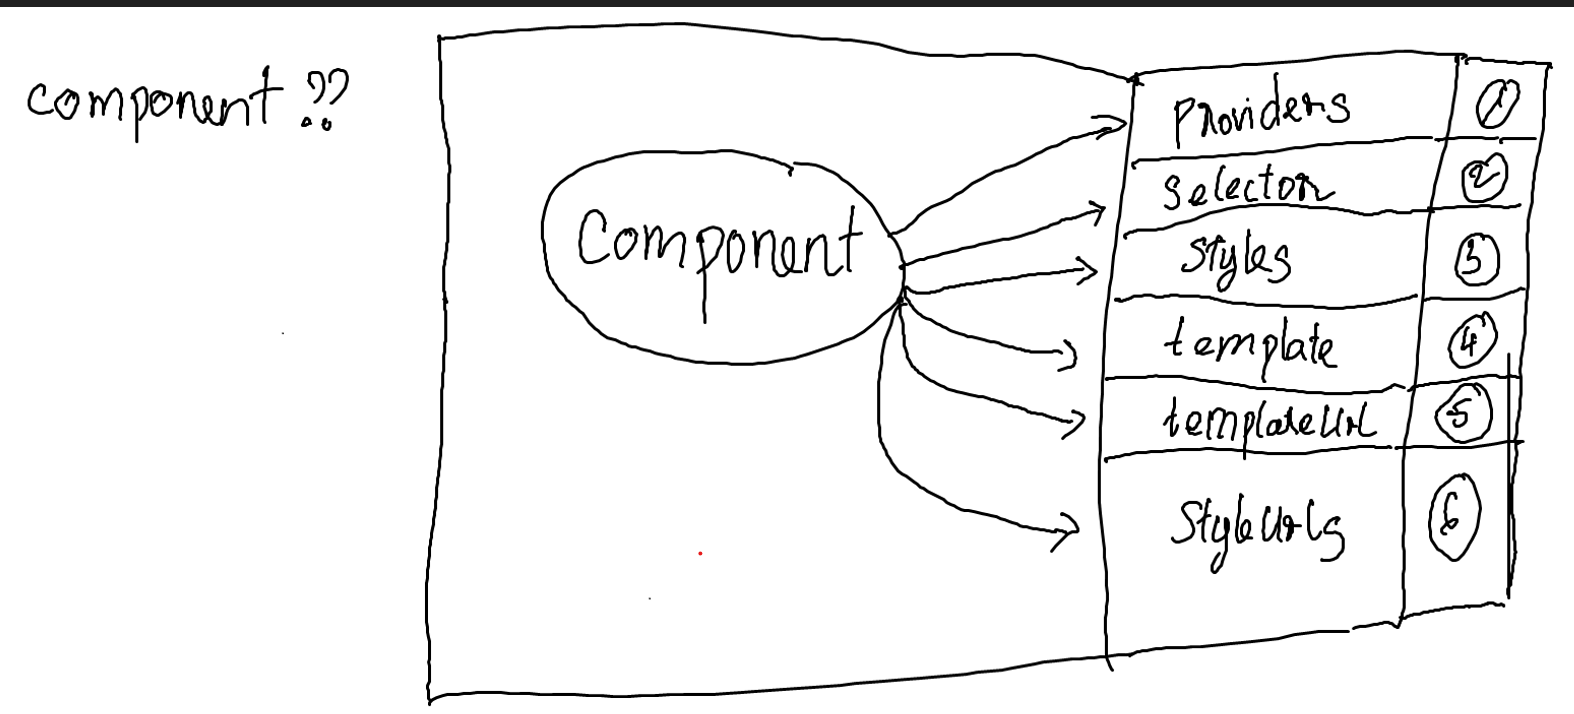 component ??
Component
Providers 1
Selector 2
Styles 3
template 4
templateUrl 5
StyleUrls 6